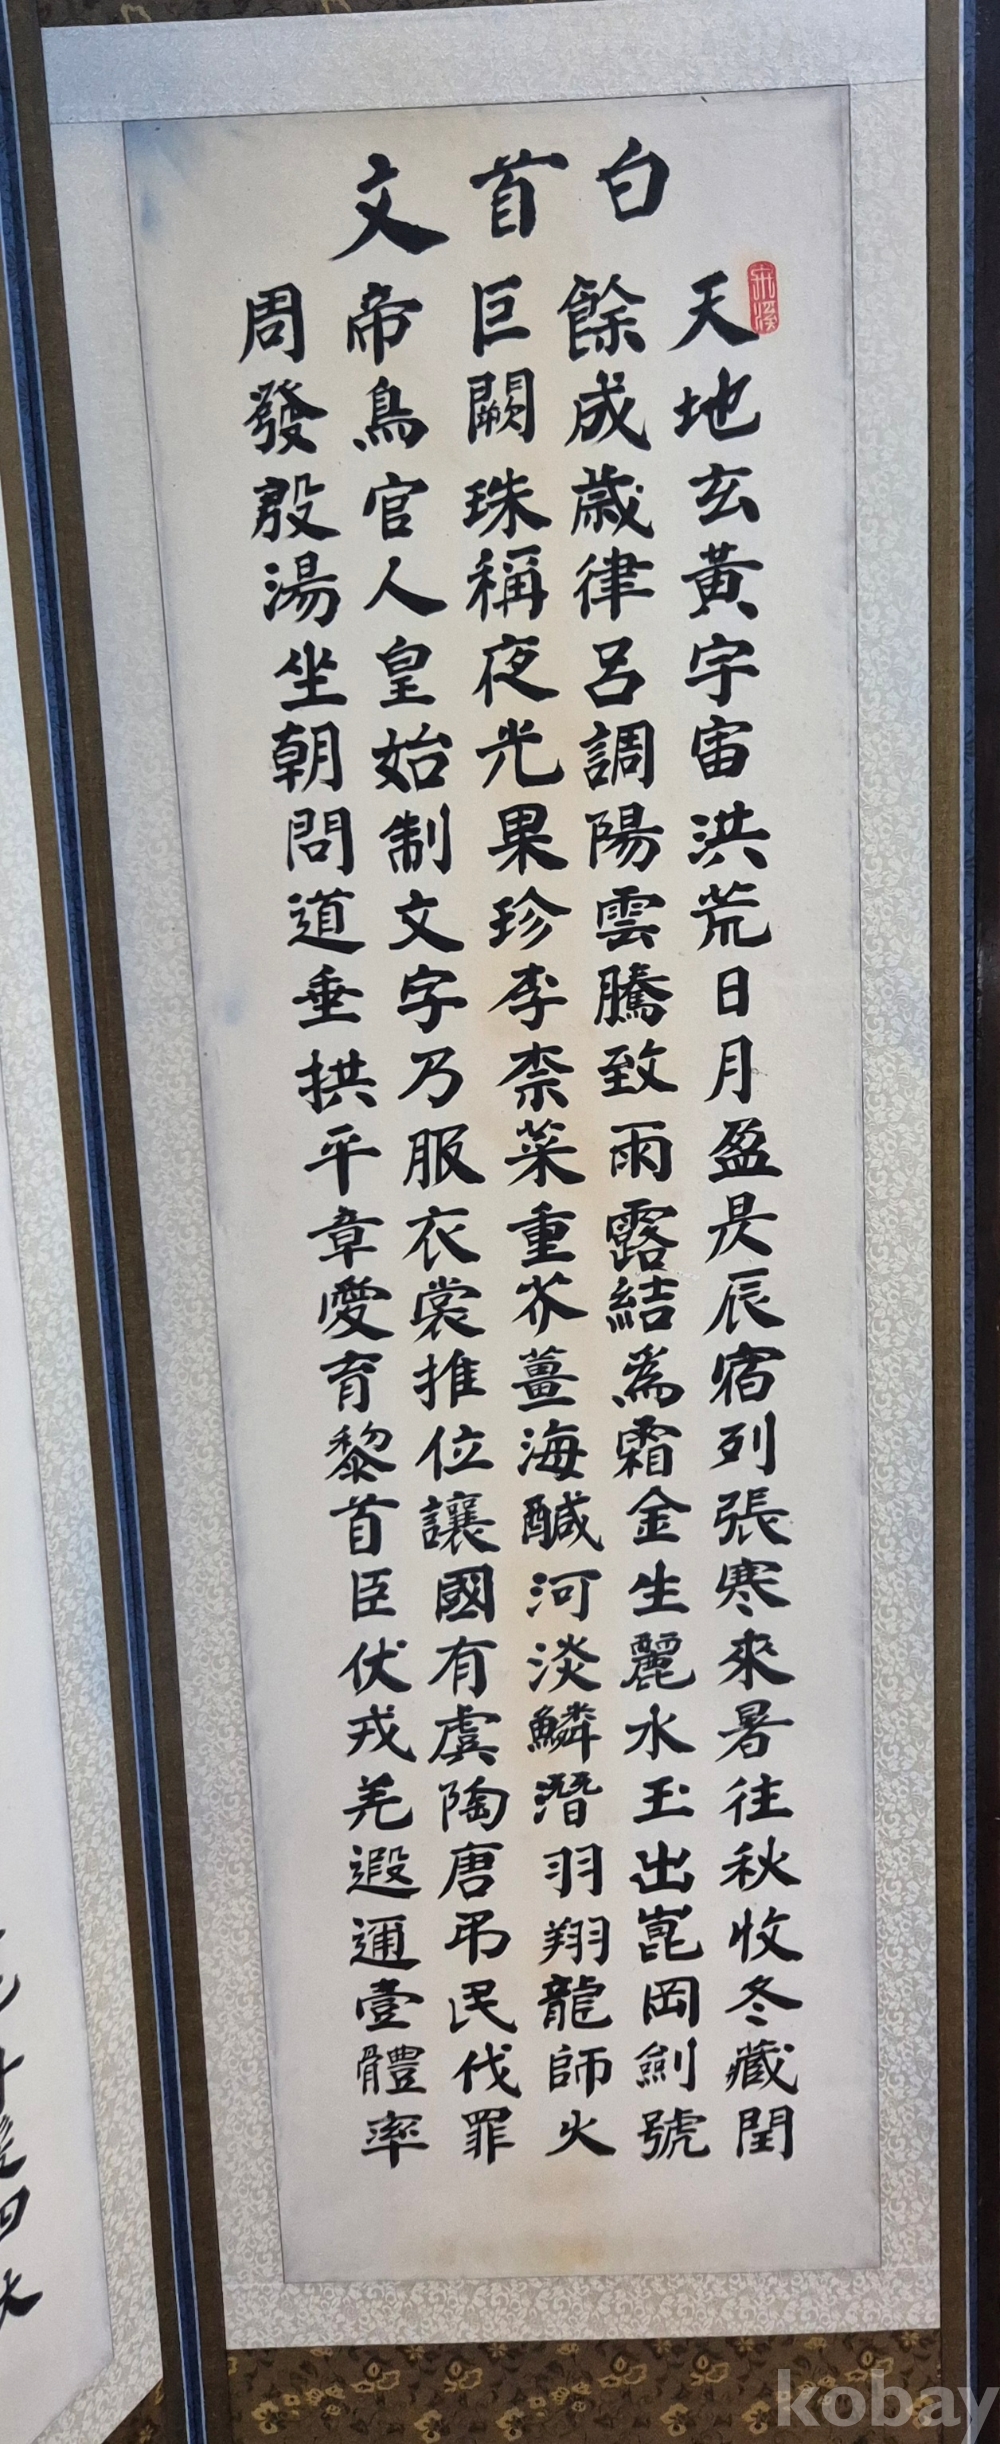 白首文
天地玄黃宇宙洪荒日月盈昃辰宿列張寒來暑往秋收冬藏閏
餘成歲律呂調陽雲騰致雨露結爲霜金生麗水玉出崑岡劍號
巨闕珠稱夜光果珍李柰菜重芥薑海鹹河淡鱗潛羽翔龍師火
帝鳥官人皇始制文字乃服衣裳推位讓國有虞陶唐弔民伐罪
周發殷湯坐朝問道垂拱平章愛育黎首臣伏戎羌遐邇壹體率
kobay